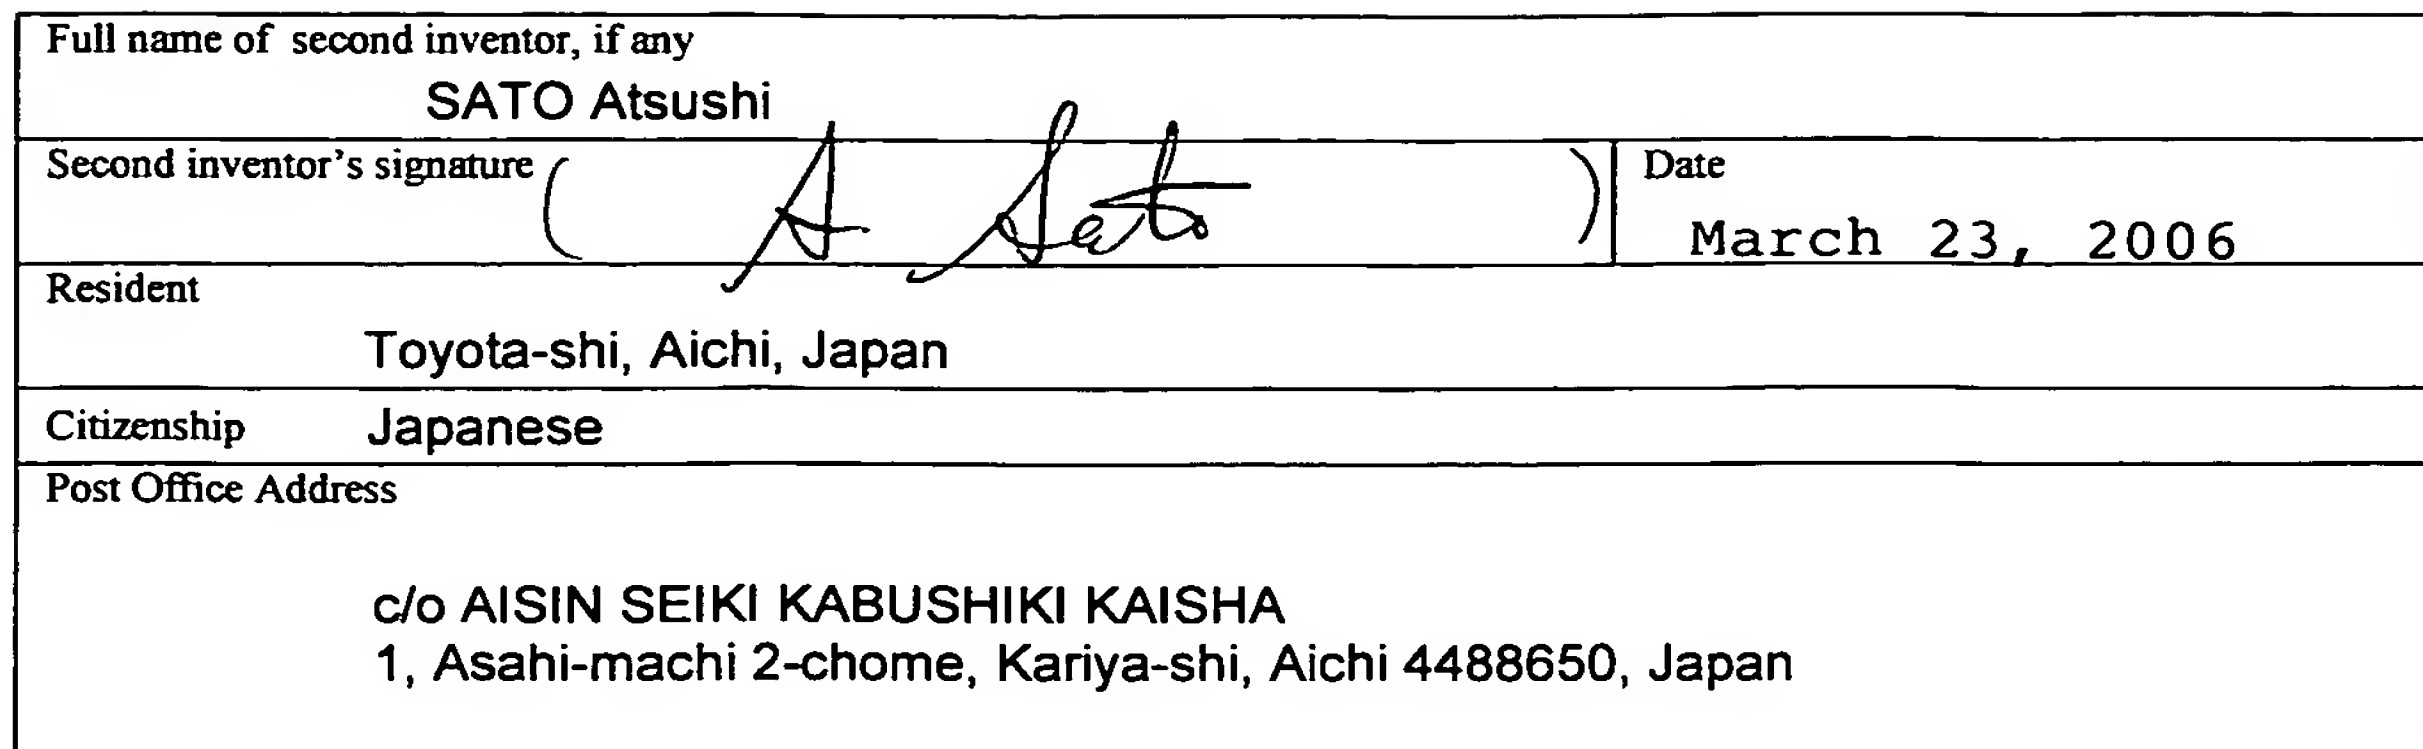 Full name of second inventor, if any
SATO Atsushi
Second inventor's signature ( A Sato ) Date
March 23, 2006
Resident
Toyota-shi, Aichi, Japan
Citizenship Japanese
Post Office Address
c/o AISIN SEIKI KABUSHIKI KAISHA
1, Asahi-machi 2-chome, Kariya-shi, Aichi 4488650, Japan